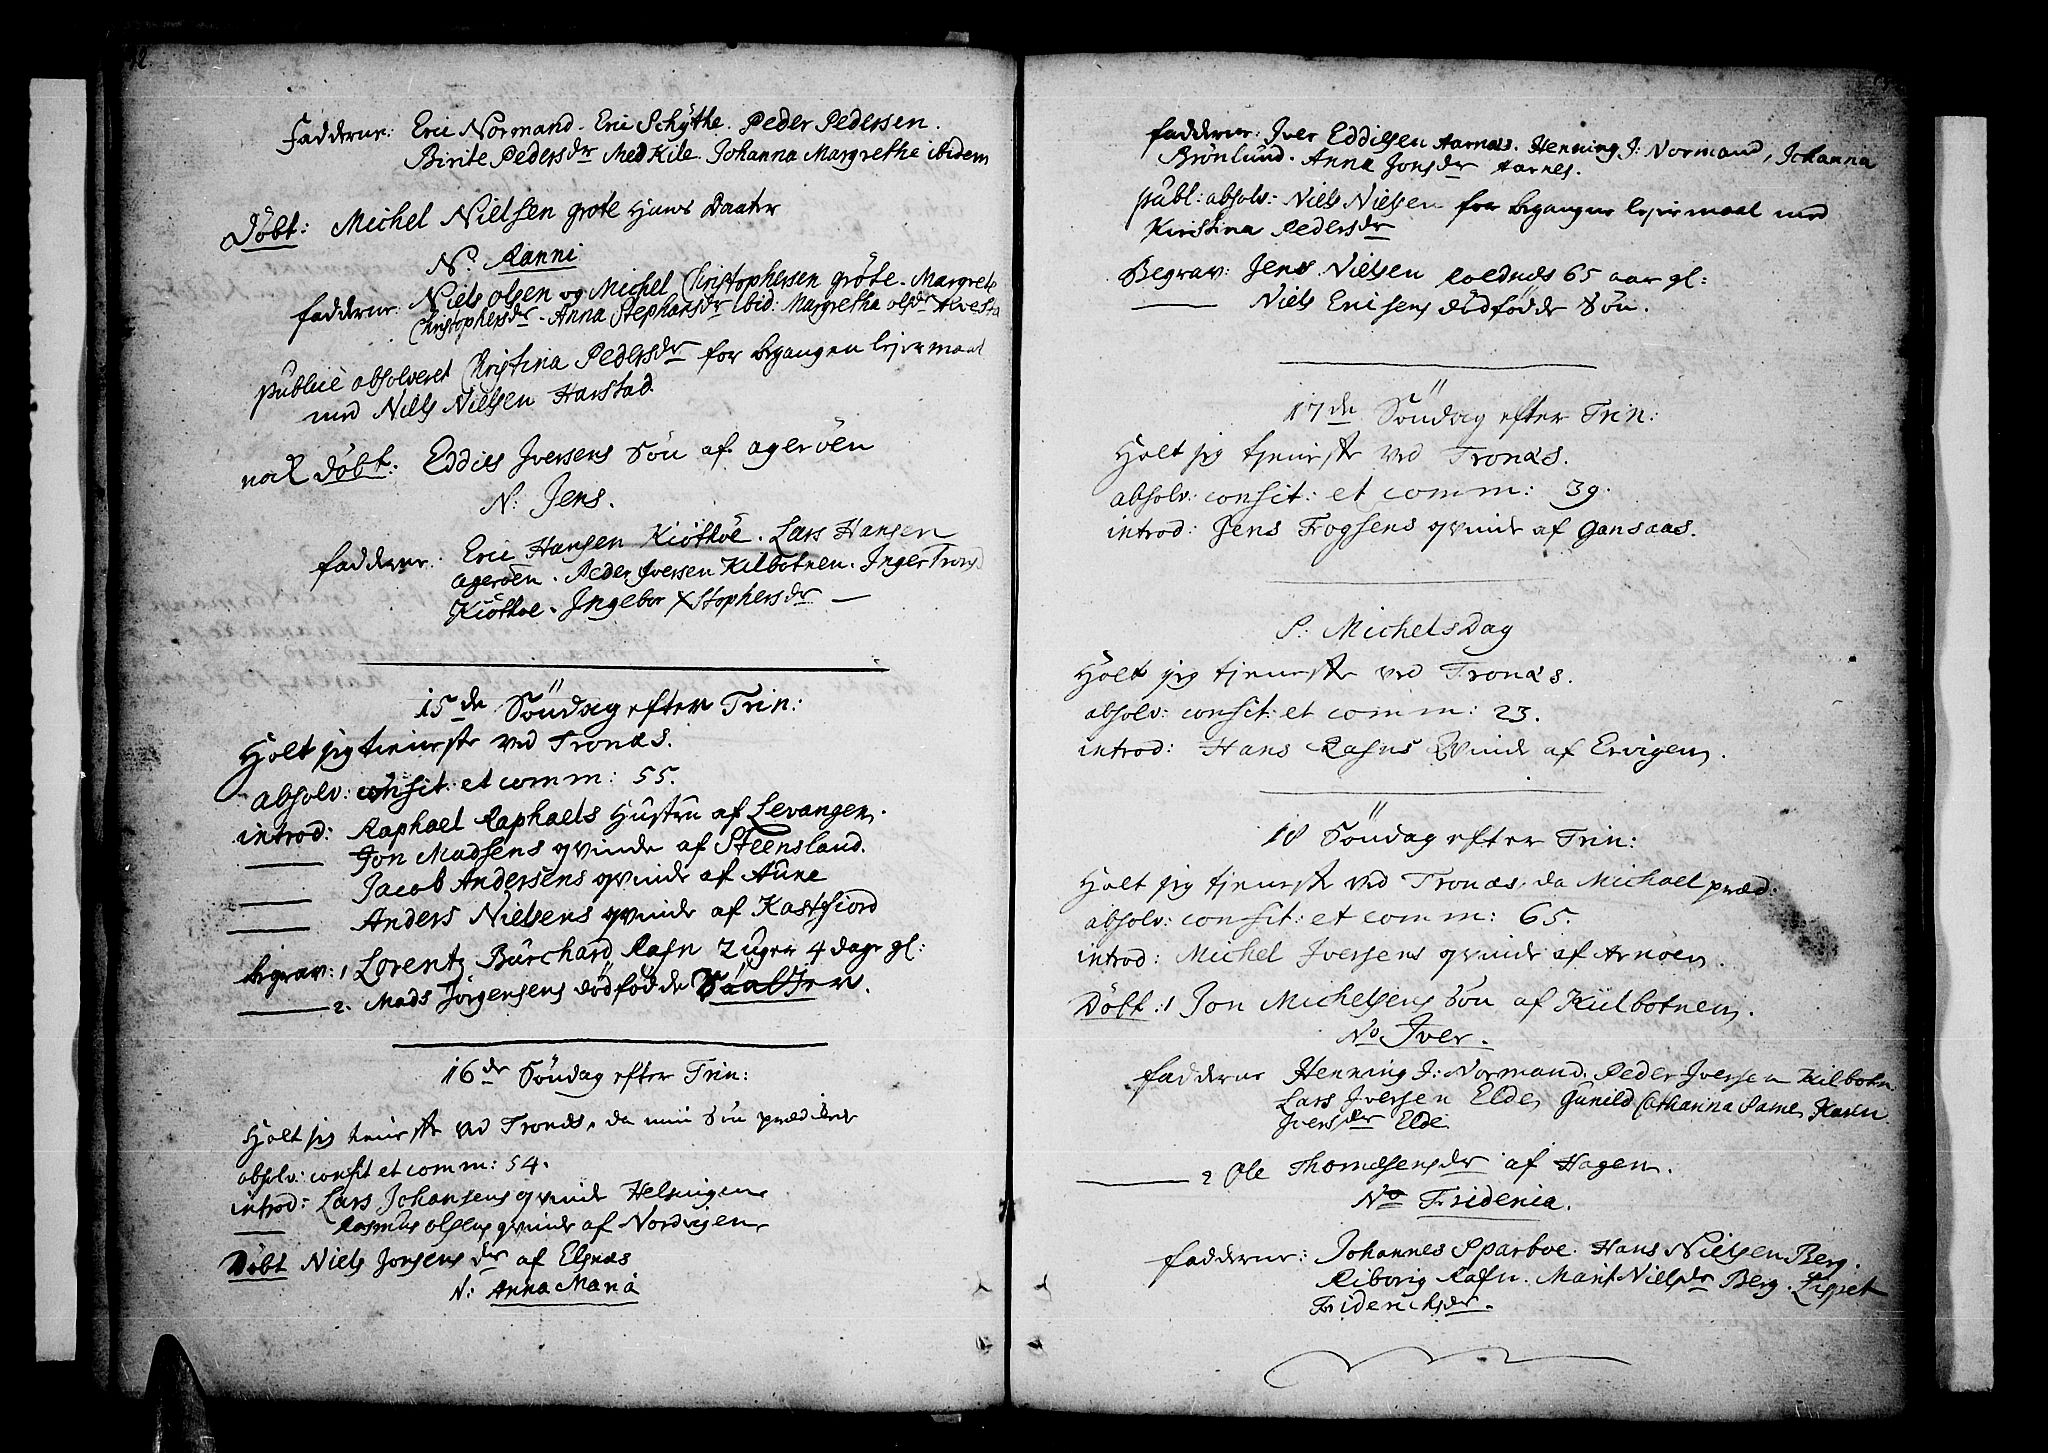 Fadderne: Eric Normand. Eric Schÿthe. Peder Pedersen.
Birite Pedersdr MedKile. Johanna Margrethe ibidem
Döbt: Michel Nielsen grote Hans Daater
N. Ranni
fadderne: Niels olsen og Michel Christophersen gröte. Margrete
Christophersdr. Anna Stephansdr ibid: Margretha olsdr
publicè absolveret Christina Pedersdr for begangen lejermaal
med Niels Nielsen Harstad.
nock döbt: Eddies Jversens Sön af ageröen
N: Jens.
fadderne: Eric Hansen Kiöthöe. Lars Hansen
agerøen. Peder Jversen Kilbotnen. Inger Trons
Kiöthoe. Ingebor Xstophersdr —
15de Söndag efter Trin:
Holt jeg tieneste ved Tronæs.
absolv: consit: et comm: 55.
introd: Raphael Raphaels Hustru af Levangen.
—— Jon Madsens qvinde af Steensland.
—— Jacob Andersens qvinde af Aune
—— Anders Nielsens qvinde af Kastfiord
begrav: 1 Lorentz Bürchard Rafn 2 uger 4 dage gl:
—— 2. Mads Jørgensens dödfödde
16de Söndag efter Trin:
Holt jeg tieneste ved Tronæs, da min Sön prædicede
absolv: consit et comm: 54.
introd: Lars Johansens qvinde Helsingen
—— Rasmus olsens qvinde af Nordvigen
Döbt Niels Jonsens dr af Elgnæs
N: Anna Maria
fadderne: Jver Eddissen Aarnæs. Henning J: Normand, Johanna
Brönlund. Anna Jonsdr Aarnes.
publ: absolv: Niels Nielsen for begangne lejermaal med
Kirstina Pedersdr
Begrav: Jens Nielsen Roldnæs 65 aar gl:
—— Niels Ericsens dödfödde Sön.
17de Söndag efter Trin:
Holt jeg tjeneste ved Tronæs.
absolv: consit: et comm: 39.
introd: Jens Frogsens qvinde af Gansaas.
S: MichelsDag
Holt jeg tjeneste ved Tronæs.
absolv: consit: et comm: 23.
introd: Hans Rafns Qvinde af Ervigen.
18 Söndag efter Trin:
Holt jeg tjeneste ved Tronæs, da Michael præd:
absolv: consit: et comm: 65.
introd: Michel Jversens qvinde af Arnøen.
Döbt: 1 Jon Michelsens Sön af Kiilbotnen.
No Jver.
fadderne Henning J: Normand. Peder Jversen Kilbotn
Lars Jversen Elde, Gunild Catharina Same, Karen
Jversdr Elde.
—— 2 Ole Thomesens dr af Hagen.
No Friderica.
fadderne: Johannes Sparboe. Hans Nielsen Berg.
Riborig Rafn. Marit Nielsdr Berg. Lispet
Friderichsdr.